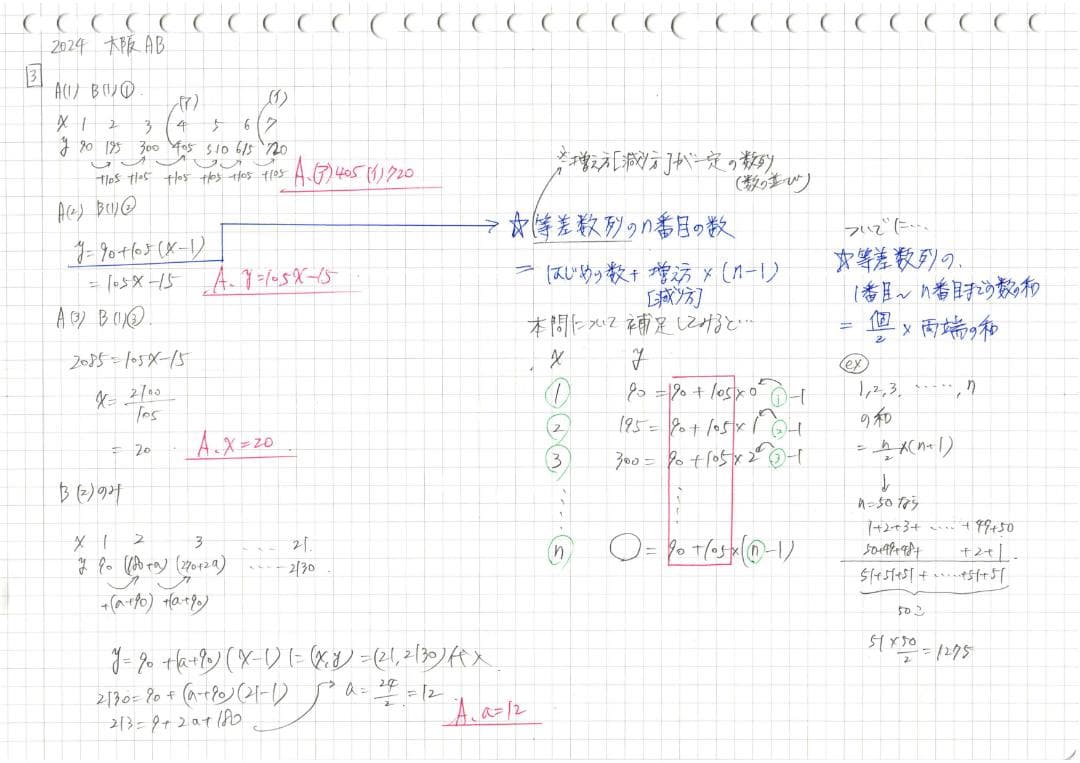 2024 大阪AB
3
A(1) B(1)①.
(ア) (イ)
x 1 2 3 4 5 6 7
y 90 195 300 405 510 615 720
+105 +105 +105 +105 +105 +105
A.(ア)405 (イ)720
A(2) B(1)②
y=90+105(x-1)
=105x-15
A. y=105x-15
A(3) B(1)③.
2085=105x-15
x=2100/105
= 20
A. x=20
B(2)のみ
x 1 2 3 ..... 21.
y 90 (180+a) (270+2a) ..... 2130
+(a+90) +(a+90)
y=90+(a+90)(x-1)に(x,y)=(21,2130)代入
2130=90+(a+90)(21-1)
213=9+2a+180
a=24/2=12
A. a=12
※増え方[減り方]が一定の数列
(数の並び)
☆等差数列のn番目の数
= はじめの数+増え方×(n-1)
[減り方]
本問について補足してみると…
x y
① 90=90+105×0 ①-1
② 195=90+105×1 ②-1
③ 300=90+105×2 ③-1
ⓝ ◯=90+105×(ⓝ-1)
ついでに…
☆等差数列の、
1番目~n番目までの数の和
= 個/2 × 両端の和
ex
1,2,3, ......, n
の和
=n/2×(n+1)
↓
n=50なら
1+2+3+ ..... +49+50
50+49+48+ +2+1
51+51+51+ ......+51+51
50こ
51×50/2=1275